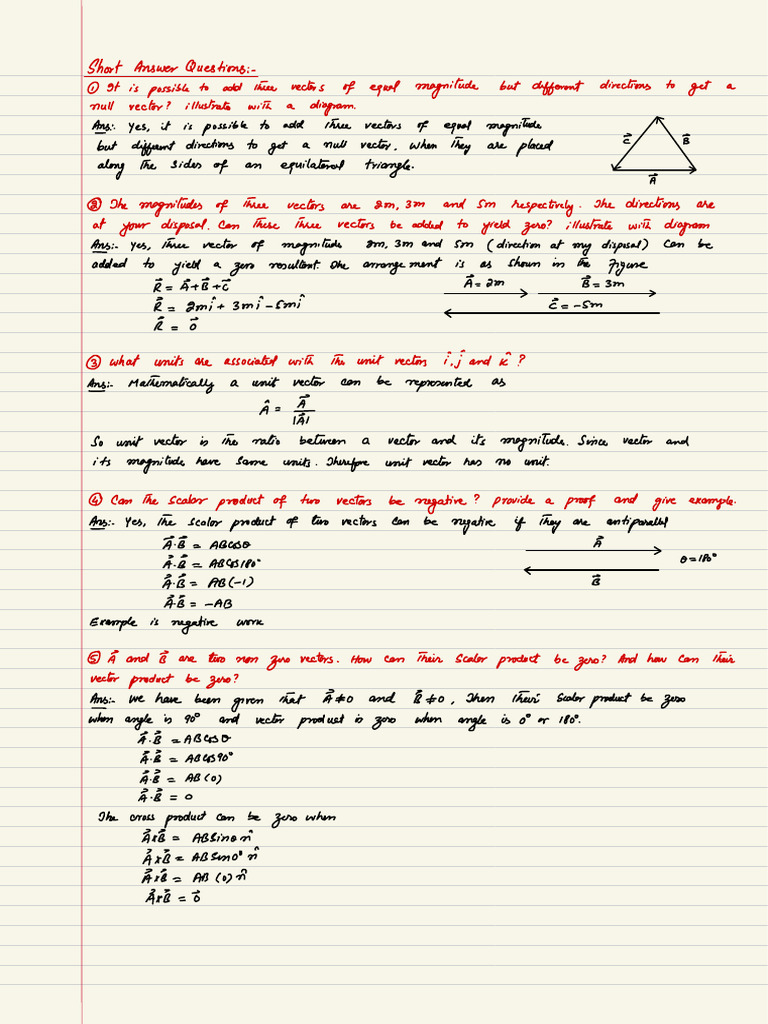 Short Answer Questions:-
① It is possible to add three vectors of equal magnitude but different directions to get a
null vector? illustrate with a diagram.
Ans:- Yes, it is possible to add three vectors of equal magnitude
but different directions to get a null vector, when they are placed
along the sides of an equilateral triangle.
C⃗ B⃗
A⃗
② The magnitudes of three vectors are 2m, 3m and 5m respectively. The directions are
at your disposal. Can these three vectors be added to yield zero? illustrate with diagram
Ans:- Yes, three vector of magnitude 2m, 3m and 5m (direction at my disposal) can be
added to yield a zero resultant. The arrangement is as shown in the figure
R⃗ = A⃗+B⃗+C⃗
R⃗ = 2mî + 3mî - 5mî
R⃗ = 0⃗
A⃗ = 2m B⃗ = 3m
C⃗ = -5m
③ what units are associated with the unit vectors î, ĵ and k̂ ?
Ans:- Mathematically a unit vector can be represented as
Â = A⃗ / |A⃗|
So unit vector is the ratio between a vector and its magnitude. Since vector and
its magnitude have same units. Therefore unit vector has no unit.
④ Can the scalar product of two vectors be negative? provide a proof and give example.
Ans:- Yes, the scalar product of two vectors can be negative if they are antiparallel
A⃗.B⃗ = ABcosθ
A⃗.B⃗ = ABcos180°
A⃗.B⃗ = AB(-1)
A⃗.B⃗ = -AB
A⃗
B⃗
θ=180°
Example is negative work
⑤ A⃗ and B⃗ are two non zero vectors. How can their scalar product be zero? And how can their
vector product be zero?
Ans:- we have been given that A⃗≠0 and B⃗≠0, Then their scalar product be zero
when angle is 90° and vector product is zero when angle is 0° or 180°.
A⃗.B⃗ = ABcosθ
A⃗.B⃗ = ABcos90°
A⃗.B⃗ = AB(0)
A⃗.B⃗ = 0
The cross product can be zero when
A⃗×B⃗ = ABsinθ n̂
A⃗×B⃗ = ABsin0° n̂
A⃗×B⃗ = AB(0) n̂
A⃗×B⃗ = 0⃗